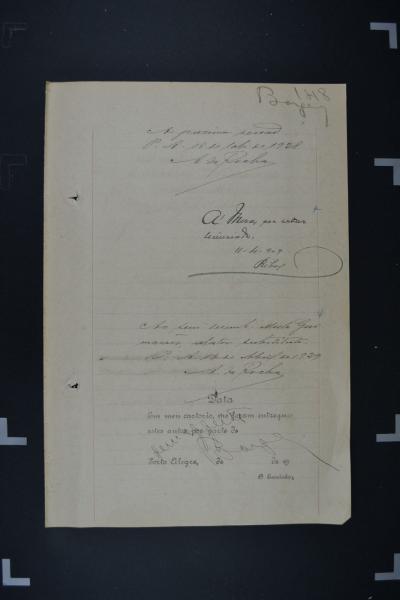 118
Borges
A proxima sessão
P. A. 18 de  de 1928
A. da Rocha
A' Mesa, por estar
licenciado.
11-4-929
Ribas
Ao Sem Desemb. Mello Gui
marães, relator substituto.
P. A. de Abril de 1929
A. da Rocha
Data
Em meu cartorio, me foram entregues
estes autos por parte do
Porto Alegre, de de 19
O Escrivão,